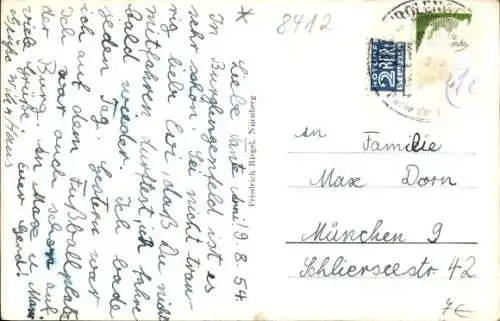 8412
*
Liebe Tante Anni! 9.8.54.
In Burglengenfeld ist es
sehr schön. Sei nicht trau-
rig liebe Evi, daß Du nicht
mitfahren durftest, ich fahre
bald wieder. Ich bade
jeden Tag. Gestern war
ich auf dem Fußballplatz
Ich war auch schon auf
der Burg. An Maxe u. Mani
viele Grüße. Euer Gerd!
Grüße
Hans
Friedrich Riegel, Nürnberg
NOTOPFER
2 BERLIN
STEUERMARKE
An
Familie
Max Dorn
München 9
Schlierseestr 42
7€